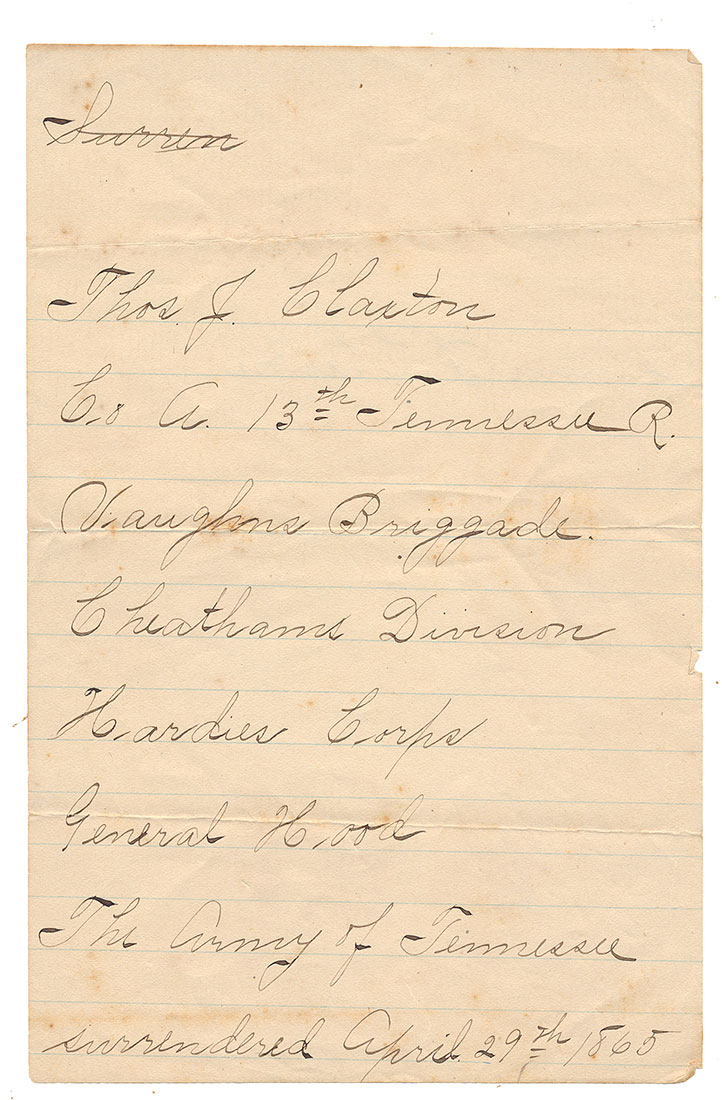 Surren
Thos. J. Claxton
Co A. 13th Tennessee R.
Vaughns Briggade.
Cheathams Division
Hardies Corps
General Hood
The Army of Tennessee
surrendered April. 29th 1865